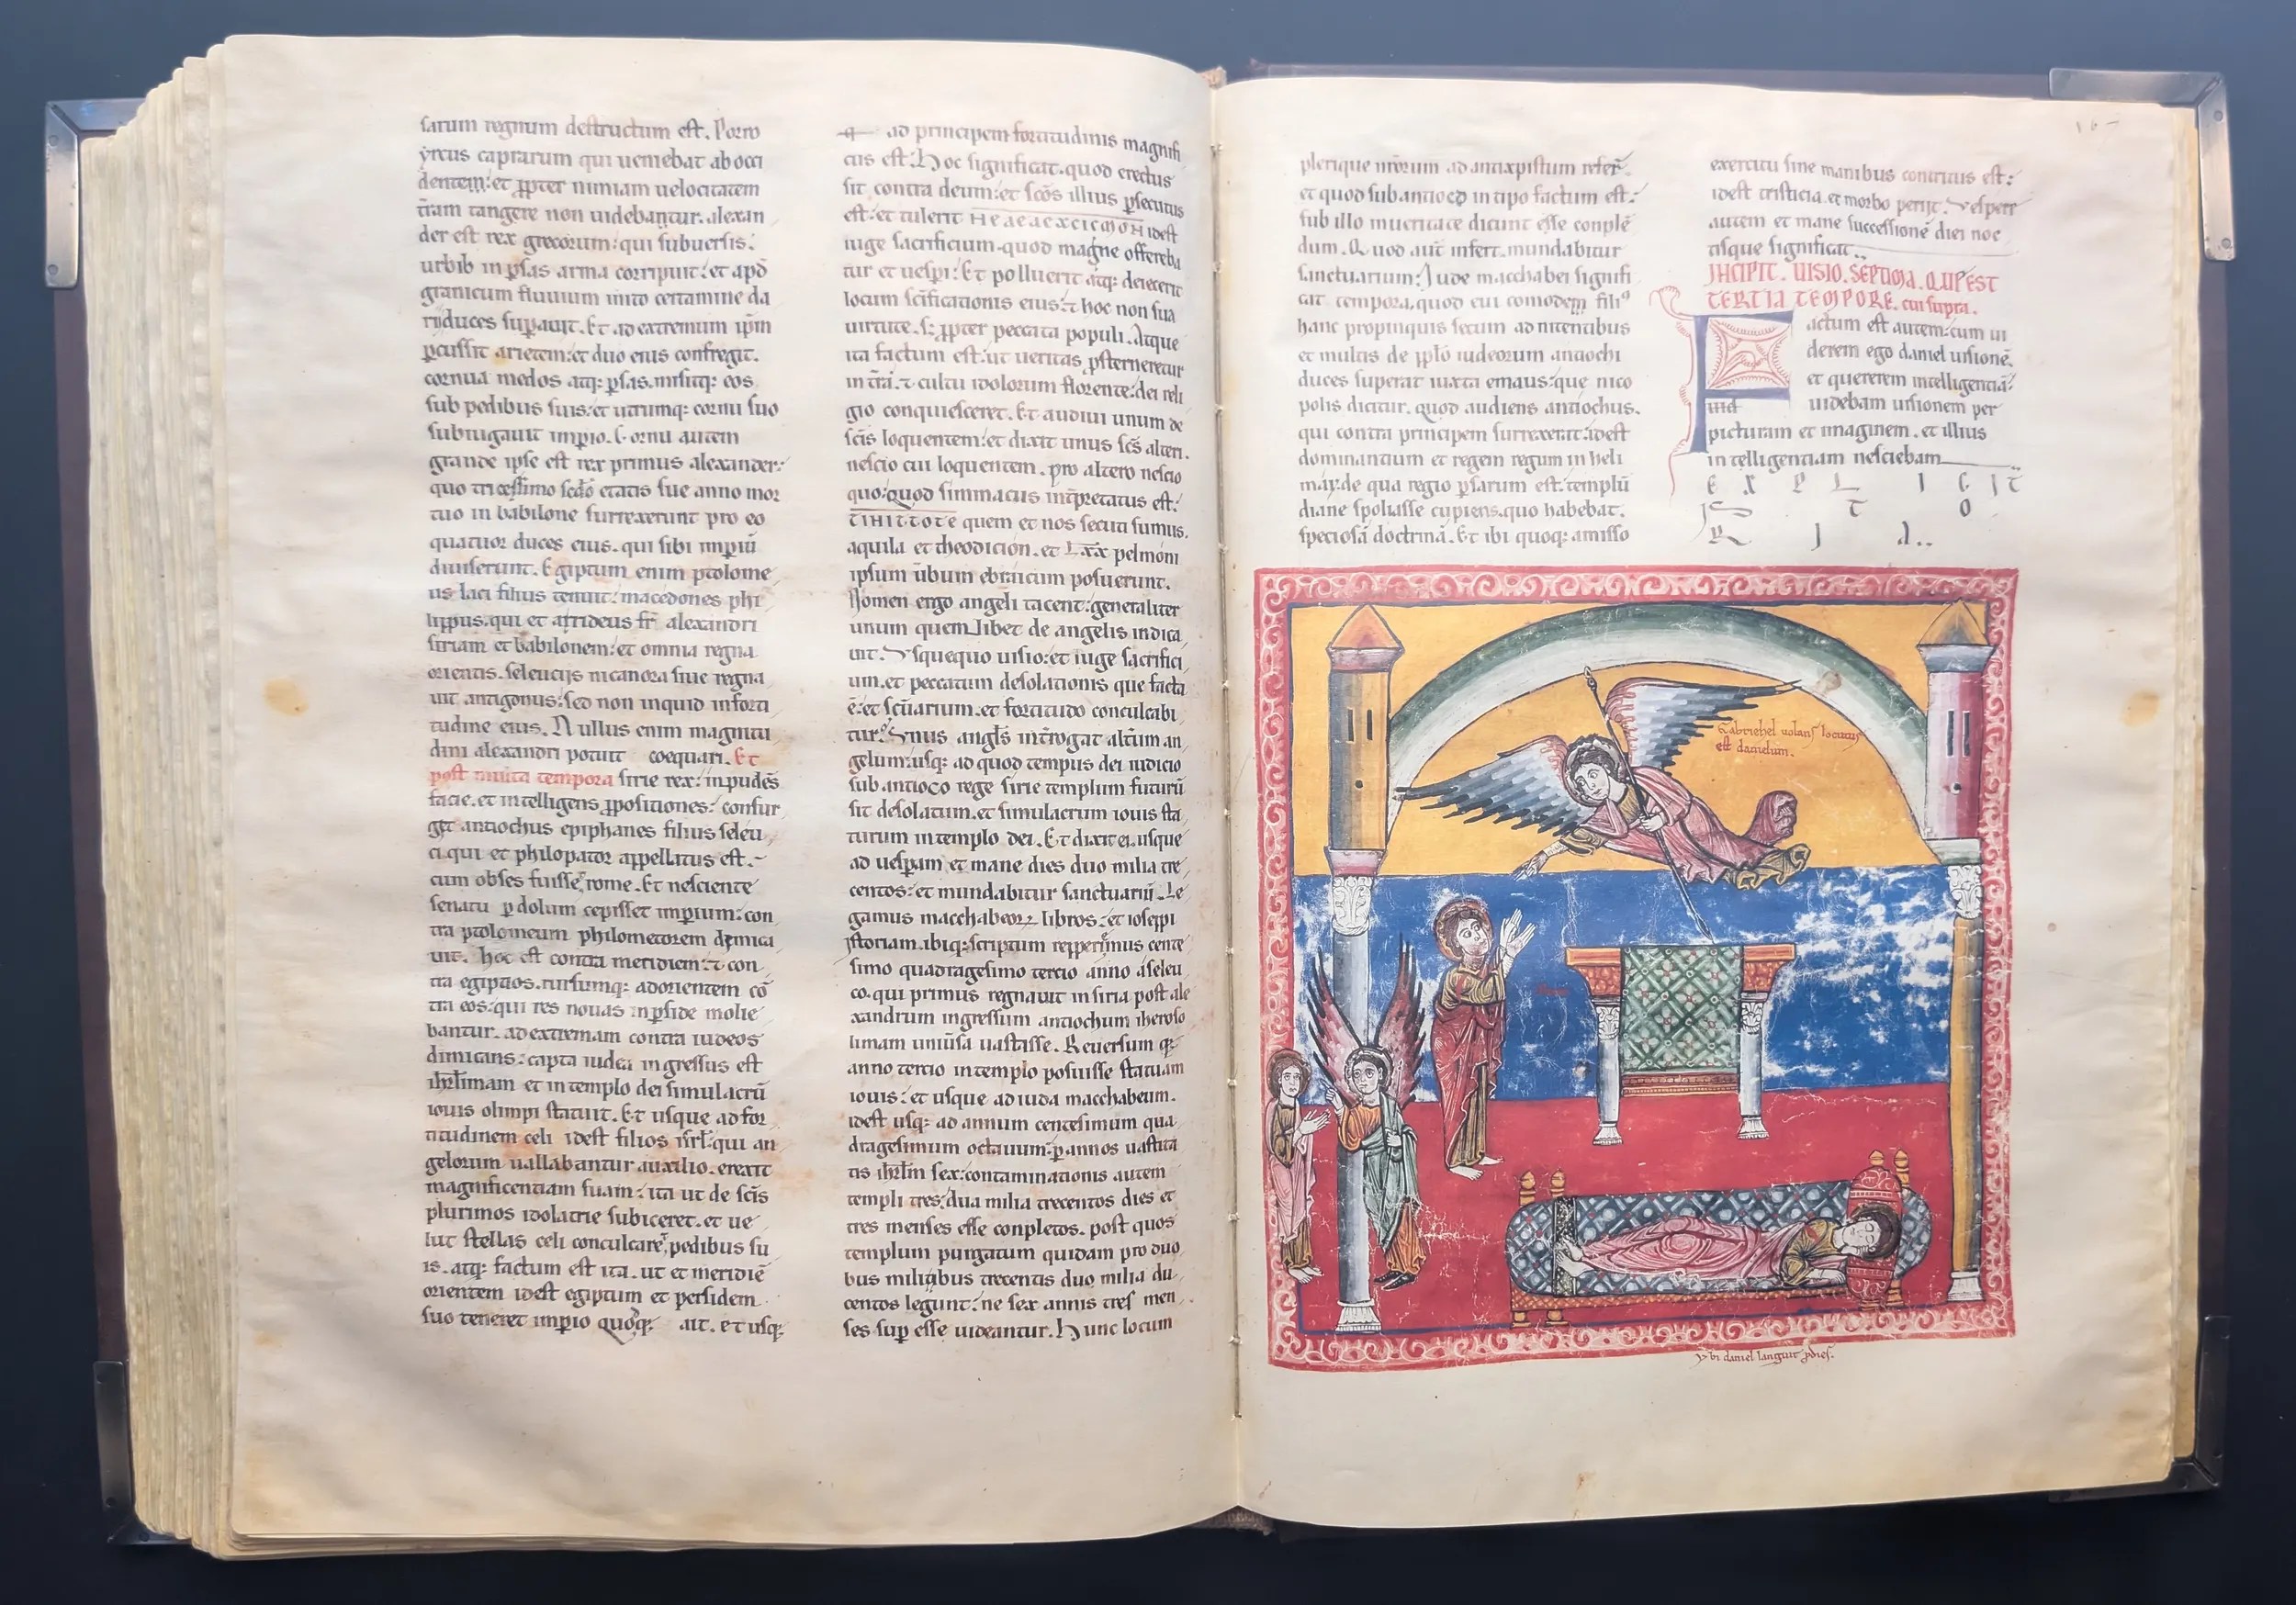 sarum regnum destructum est. Porro
yrcus caprarum qui ueniebat ab occi
dentem: et ꝓpter nimiam uelocitatem
t̄ram tangere non uidebantur: alexan
der est rex grecorum: qui subuersis:
urbib in ꝑsas arma corripuit: et apd̄
granicum fluuium inito certamine da
rij duces suꝑauit. Et ad extremum ip̄m
ꝑcussit arietem: et duo eius confregit.
cornua medos atq: ꝑsas. misitq: eos
sub pedibus suis: et utrumq: cornu suo
subiugauit imꝑio. Cornu autem
grande ipse est rex primus alexander:
quo tricessimo scd̄o etatis sue anno mor
tuo in babilone surrexerunt pro eo
quatuor duces eius. qui sibi imꝑiū
diuiserunt. Egiptum enim ptolome
us laci filius tenuit: macedones phi
lippus. qui et arrideus fr̄ alexandri
siriam et babilonem: et omnia regna
orientis. seleucijs nicanora siue regna
uit antigonus: sed non inquid in forti
tudine eius. Nullus enim magnitu
dini alexandri potuit coequari. Et
post multa tempora sirie rex: inpudēs
facie. et intelligens ꝓpositiones: consur
get antiochus epiphanes filius seleu
ci qui et philopator appellatus est.
cum obses fuisset rome. Et nesciente
senatu ꝑ dolum cepisset imꝑium: con
tra ptolomeum philometorem dimica
uit. hoc est contra meridiem: ⁊ con
tra egiptios. rursumq: ad orientem cō
tra eos: qui res nouas in ꝑside molie
bantur. ad extremam contra iudeos
dimicans: capta iudea ingressus est
ih̄rl̄imam et in templo dei simulacrū
iouis olimpi statuit. Et usque ad for
titudinem celi idest filios isrl̄: qui an
gelorum uallabantur auxilio. erexit
magnificentiam suam: ita ut de sc̄is
plurimos idolatrie subiceret. et ue
lut stellas celi conculcaret pedibus su
is. atq: factum est ita. ut et meridiē
orientem idest egiptum et persidem
suo teneret imꝑio quoq: ait. et usq:
ad principem fortitudinis magnifi
cus est: Hoc significat. quod erectus
sit contra deum: et sc̄os illius ꝑsecutus
est: et tulerit idest
iuge sacrificium. quod magne offereba
tur et uesꝑi: Et polluerit atq: deiecerit
locum sc̄ificationis eius: ⁊ hoc non sua
uirtute. s; ꝓpter peccata populi. Atque
ita factum est: ut ueritas ꝓsterneretur
in t̄rā. ⁊ cultu idolorum florente: dei reli
gio conquiesceret. Et audiui unum de
sc̄is loquentem: et dixit unus sc̄s alteri.
nescio cui loquentem. pro altero nescio
quo: quod simmacus int̄pretatus est:
quem et nos secuti sumus.
aquila et theodicion. et Lxx pelmoni
ipsum ūbum ebraicum posuerunt.
Nomen ergo angeli tacent: generaliter
unum quem libet de angelis indica
uit. Vsquequo uisio: et iuge sacrifici
um. et peccatum desolationis que facta
ē: et sc̄uarium. et fortitudo conculcabi
tur: Vnus angl̄s int̄rogat alt̄um an
gelum: usq: ad quod tempus dei iudicio
sub antioco rege sirie templum futurū
sit desolatum. et simulacrum iouis sta
turum in templo dei. Et dixit ei. usque
ad uesꝑam et mane dies duo milia tre
centos: et mundabitur sanctuariū. Le
gamus macchabeoꝝ libros: et iosepi
ystoriam. ibiq: scriptum repperimus cente
simo quadragesimo tercio anno a seleu
co. qui primus regnauit in siria post ale
xandrum ingressum antiochum iheroso
limam uniūsa uastasse. Reuersum q:
anno tercio in templo posuisse statuam
iouis: et usque ad iuda macchabeum.
idest usq: ad annum centesimum qua
dragesimum octauum: ꝑ annos uastita
tis ih̄rl̄m sex: contaminationis autem
templi tres: dua milia trecentos dies et
tres menses esse conpletos. post quos
templum purgatum quidam pro duo
bus milibus trecentis duo milia du
centos legunt: ne sex annis tres men
ses suꝑ esse uideantur. Hunc locum
plerique nr̄orum ad antixpistum refer̄.
et quod sub antioco in tipo factum est:
sub illo in ueritate dicunt esse conplē
dum. Quod aut̄ infert. mundabitur
sanctuarium: Iude macchabei signifi
cat tempora. quod cui comodem filiꝰ
hanc propinquis secum ad nitentibus
et multis de ꝓplō iudeorum antiochi
duces superat iuxta emaus: que nico
polis dicitur. quod audiens antiochus.
qui contra principem surrexerit: idest
dominantium et regem regum in heli
mayde qua regio ꝑsarum est: templū
diane spoliasse cupiens. quo habebat.
speciosā doctrinā. Et ibi quoq: amisso
exercitu sine manibus contritus est:
idest tristicia. et morbo perijt. Vespere
autem et mane successionē diei noc
tisque significat..
INCIPIT. UISIO. SEPTIMA. QUE EST
TERTIA TEMPORE. cui supra.
Factum est autem: cum ui
derem ego daniel uisionē.
et quererem intelligentiā:
uidebam uisionem per
picturam et imaginem. et illius
intelligentiam nesciebam
EXPLICIT
STO
RIA..
Gabrihel uolans locutus
est danielum.
Vbi daniel languit ꝑ dies.